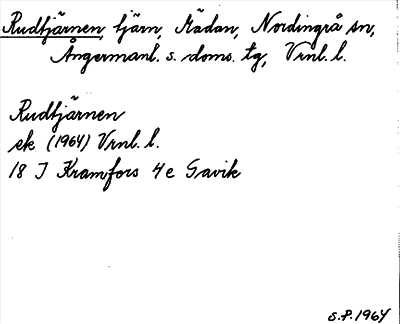 Rudtjärnen, tjärn, Mädan, Nordingrå sn,
Ångermanl. s. doms. tg, Vrnl. l.
Rudtjärnen
ek (1964) Vrnl. l.
18 I Kramfors 4 e Gavik
S.P. 1964